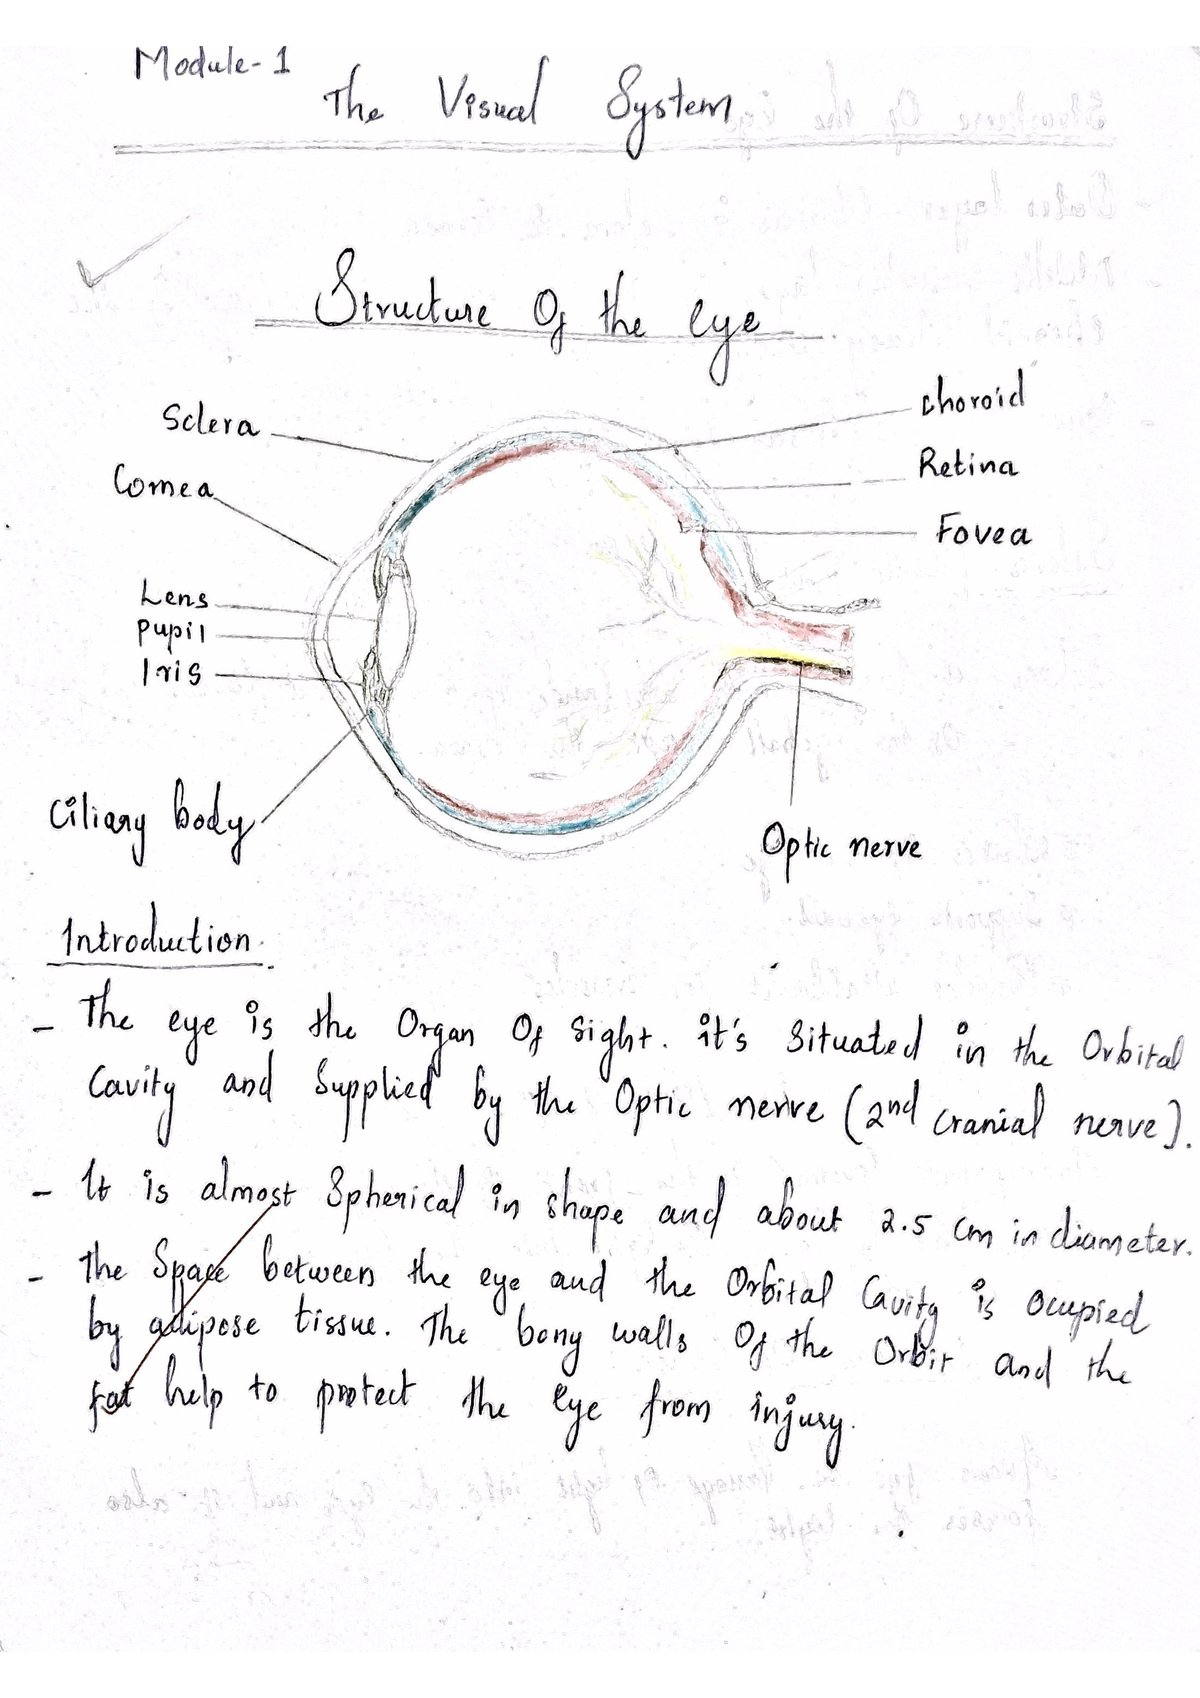 Module-1
The Visual System
Structure Of the eye
Sclera
choroid
Cornea
Retina
Fovea
Lens
pupil
Iris
Ciliary body
Optic nerve
Introduction.
- The eye is the Organ Of Sight. it's Situated in the Orbital
Cavity and Supplied by the Optic nerve (2nd cranial nerve).
- It is almost Spherical in shape and about 2.5 cm in diameter.
- The Space between the eye and the Orbital Cavity is Ocupied
by adipose tissue. The bony walls Of the Orbit and the
fat help to protect the eye from injury.